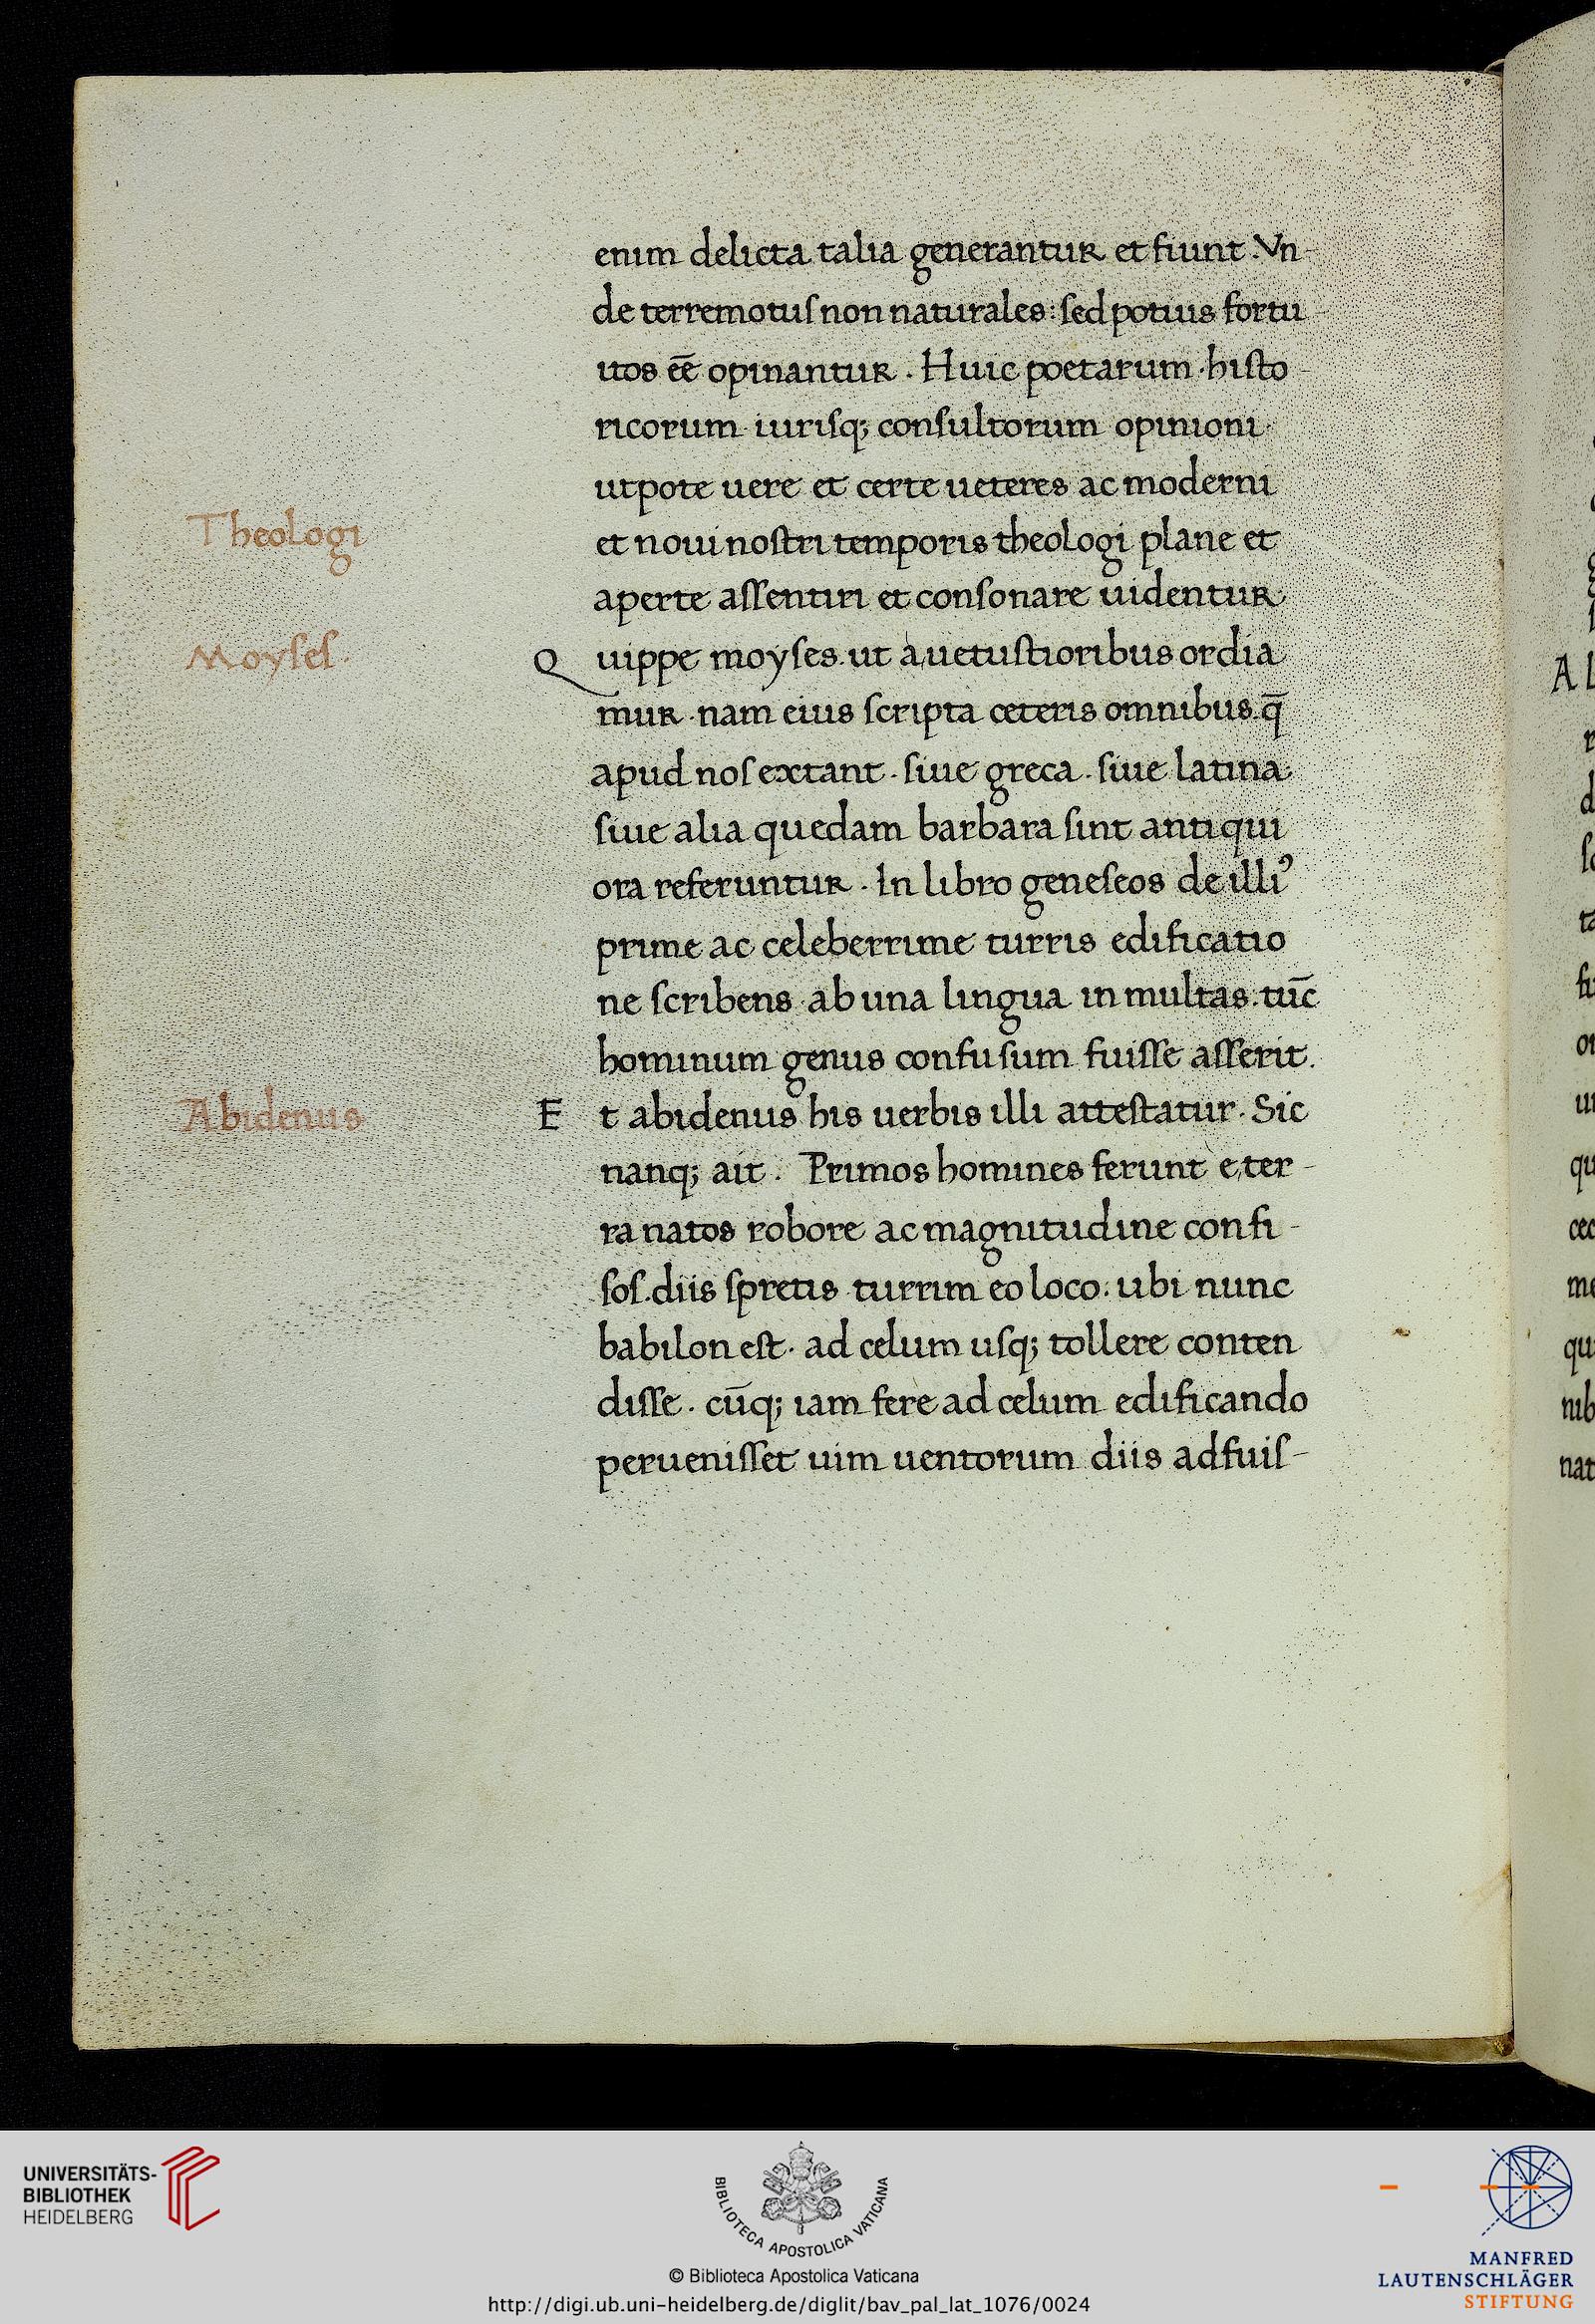 enim delicta talia generantur et fiunt. Vn-
de terremotuſ non naturales: ſed potius fortu
itos eē opinantur. Huic poetarum. hiſto-
ricorum iuriſq; conſultorum opinioni
utpote uere et certe ueteres ac moderni
Theologi
et noui noſtri temporis theologi plane et
aperte aſſentiri et conſonare uidentur
Moyſeſ.
Quippe moyſes. ut a uetuſtioribus ordia
mur. nam eius ſcripta ceteris omnibus. q̄
apud noſ extant. ſiue greca. ſiue latina
ſiue alia quedam barbara ſint antiqui
ora referuntur. In libro geneſeos de illiꝰ
prime ac celeberrime turris edificatio
ne ſcribens ab una lingua in multas. tūc
hominum genus confuſum fuiſſe aſſerit.
Abidenus
Et abidenus his uerbis illi atteſtatur. Sic
nanq; ait. Primos homines ferunt e ter-
ra natos robore ac magnitudine confi-
ſoſ. diis ſpretis turrim eo loco: ubi nunc
babilon eſt. ad celum uſq; tollere conten
diſſe. cūq; iam fere ad celum edificando
perueniſſet uim uentorum diis adfuiſ-
A l
UNIVERSITÄTS-
BIBLIOTHEK
HEIDELBERG
BIBLIOTECA APOSTOLICA VATICANA
© Biblioteca Apostolica Vaticana
http://digi.ub.uni-heidelberg.de/diglit/bav_pal_lat_1076/0024
MANFRED
LAUTENSCHLÄGER
STIFTUNG